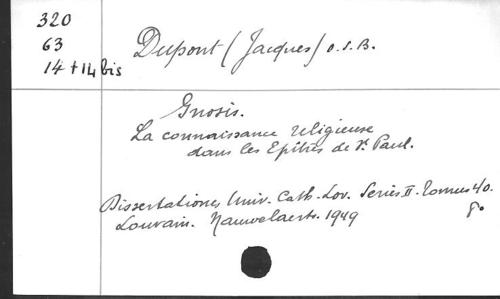 320
63
14 + 14 bis
Dupont (Jacques) O.S.B.
Gnosis.
La connaissance religieuse
dans les Epîtres de St Paul.
Dissertationes Univ. Cath. Lov. Series II. Tomus 40.
Louvain. Nauwelaerts. 1949
8°